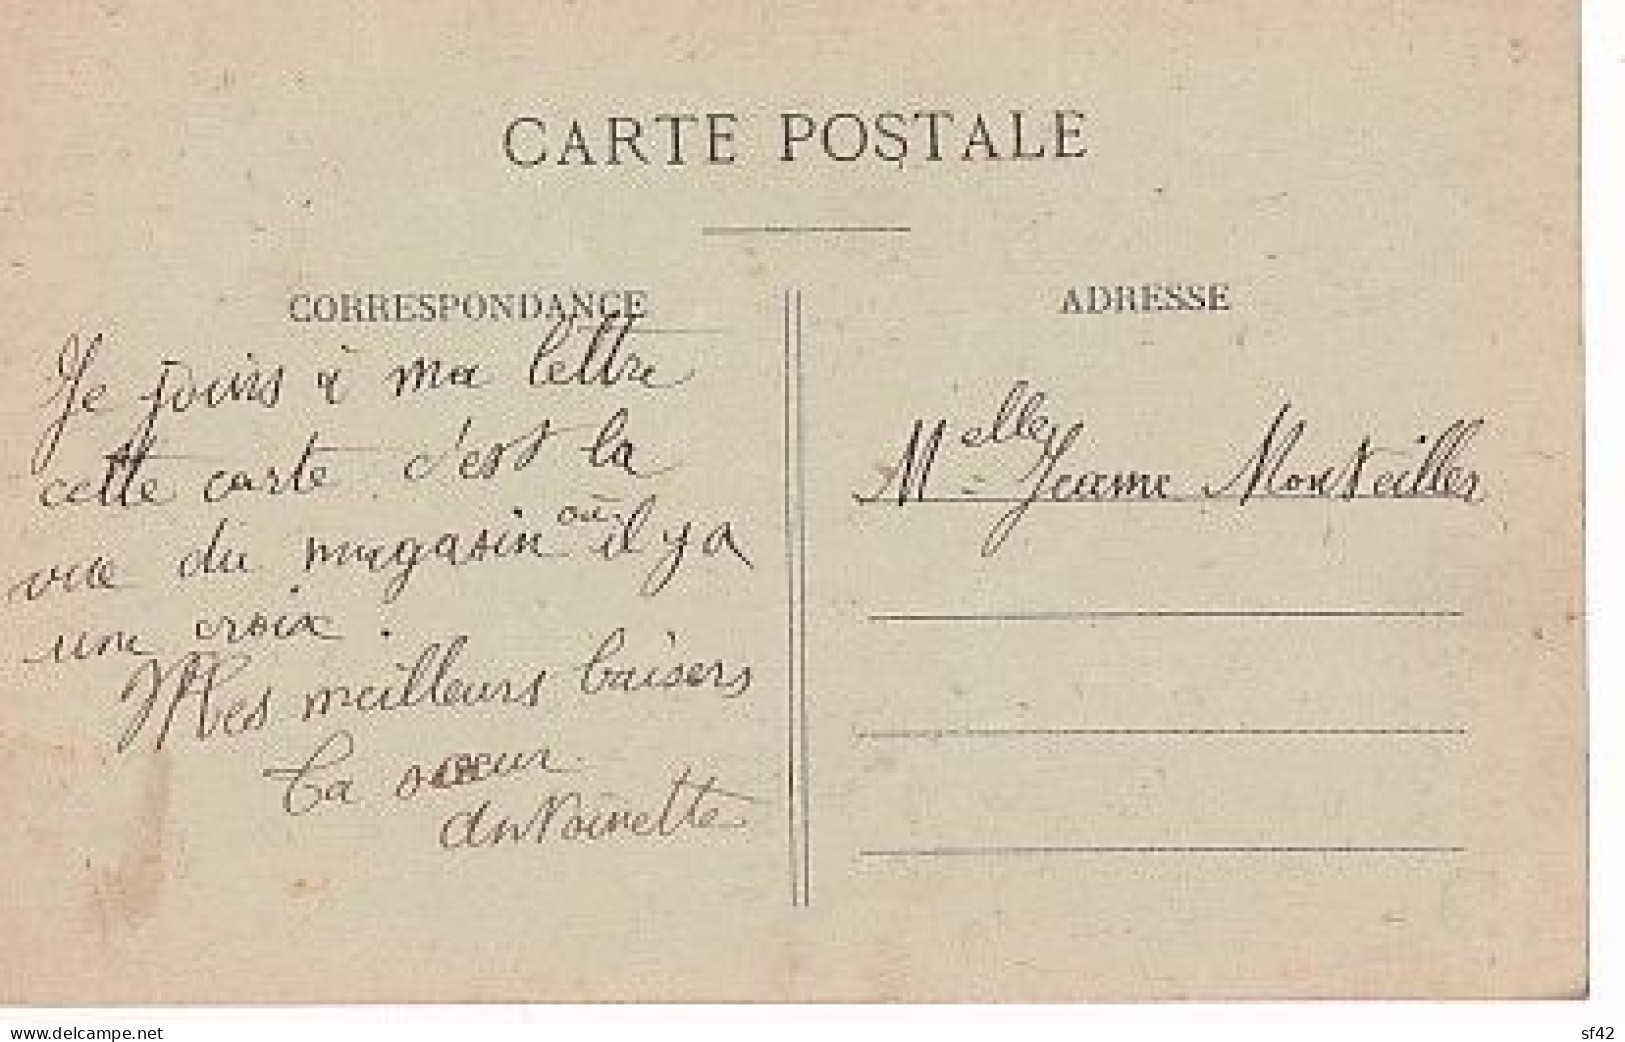 CARTE POSTALE
CORRESPONDANCE
Je joins à ma lettre
cette carte c'est la
vue du magasin où il y a
une croix.
Mes meilleurs baisers
Ta sœur
Antoinette
ADRESSE
Melle Jeanne Monteiller
www.delcampe.net
sf42